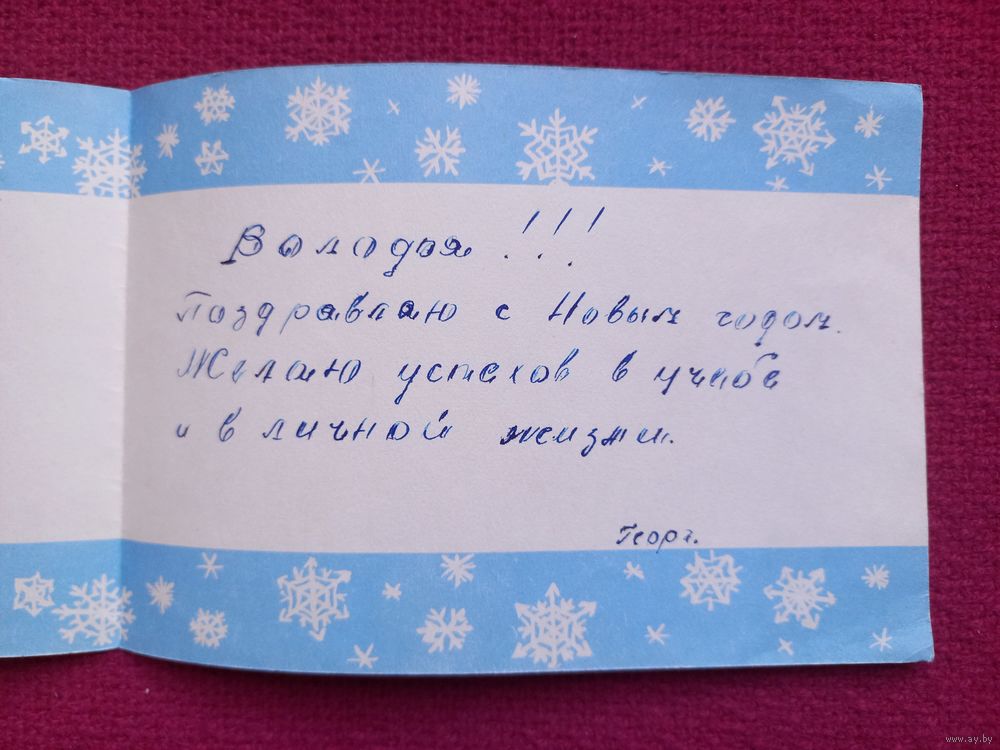 Володя !!!
Поздравляю с Новым годом.
Желаю успехов в учебе
и в личной жизни.
Георг.
www.ay.by